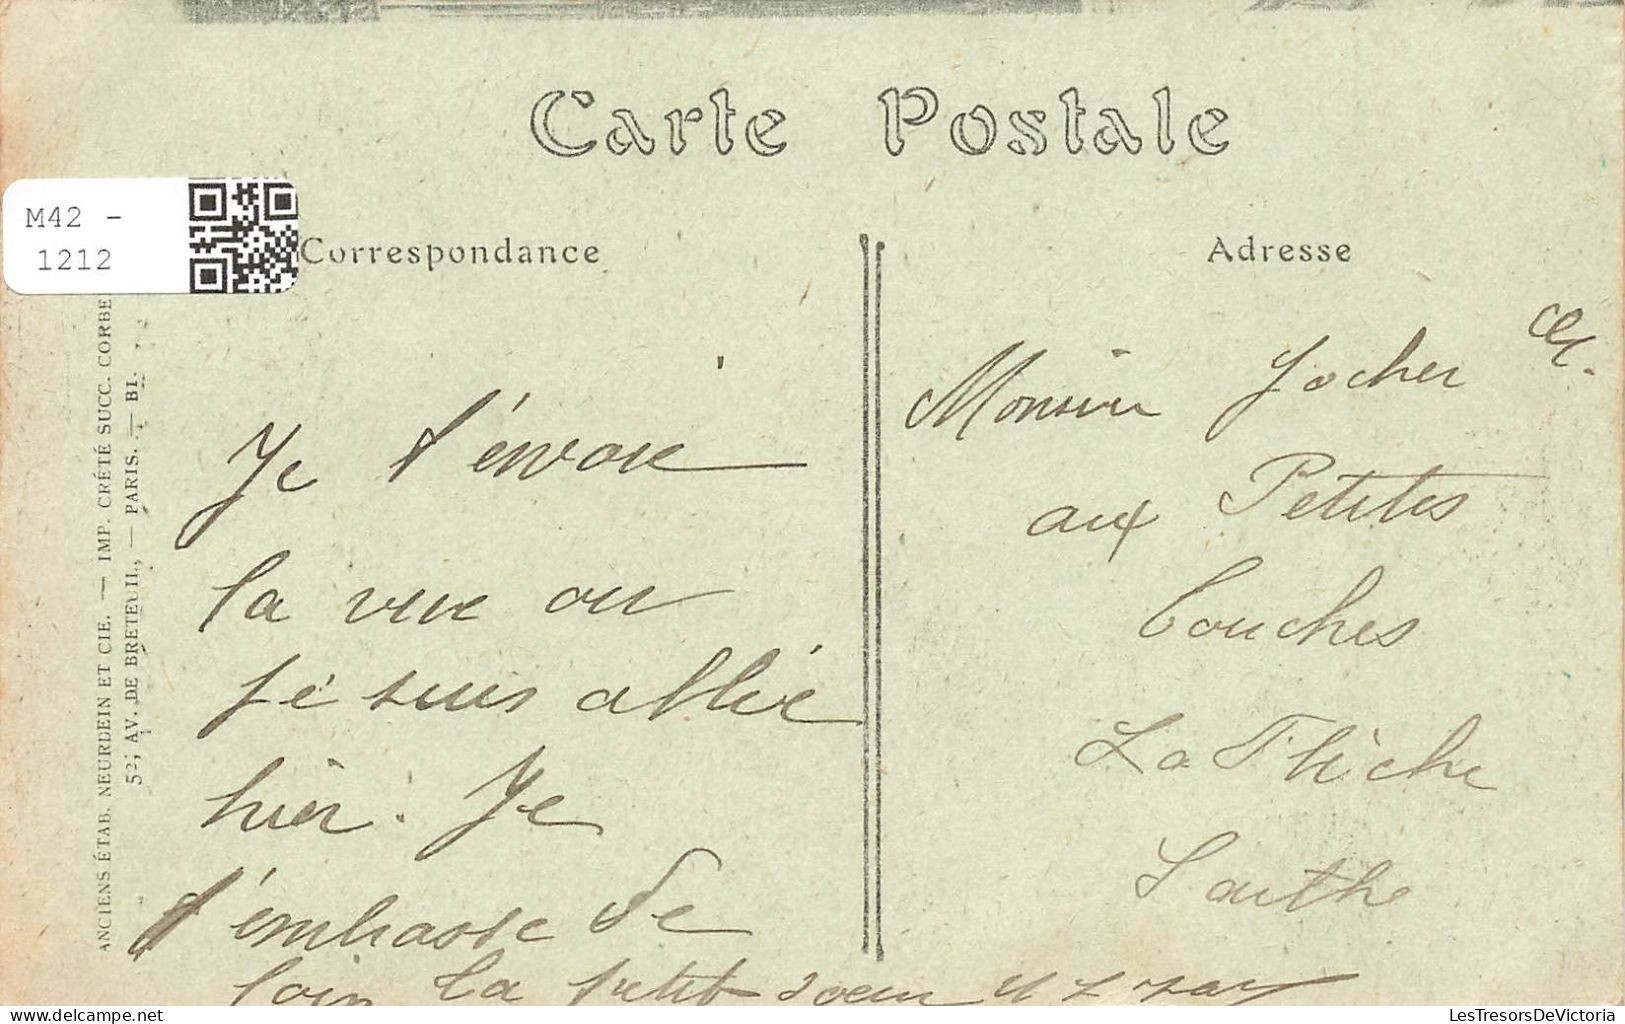 Carte Postale
M42 -
1212
Correspondance
Adresse
ANCIENS ÉTAB. NEURDEIN ET CIE. — IMP. CRÉTÉ SUCC. CORBE
52, AV. DE BRETEUIL, — PARIS. — BI.
Je t'énvoie
la vue ou
je suis allée
hièr. Je
t'émbasse de
loin la petit soeur
Monsieur Jocher
aux Petites
Couches
La Flèche
Sarthe
LesTresorsDeVictoria